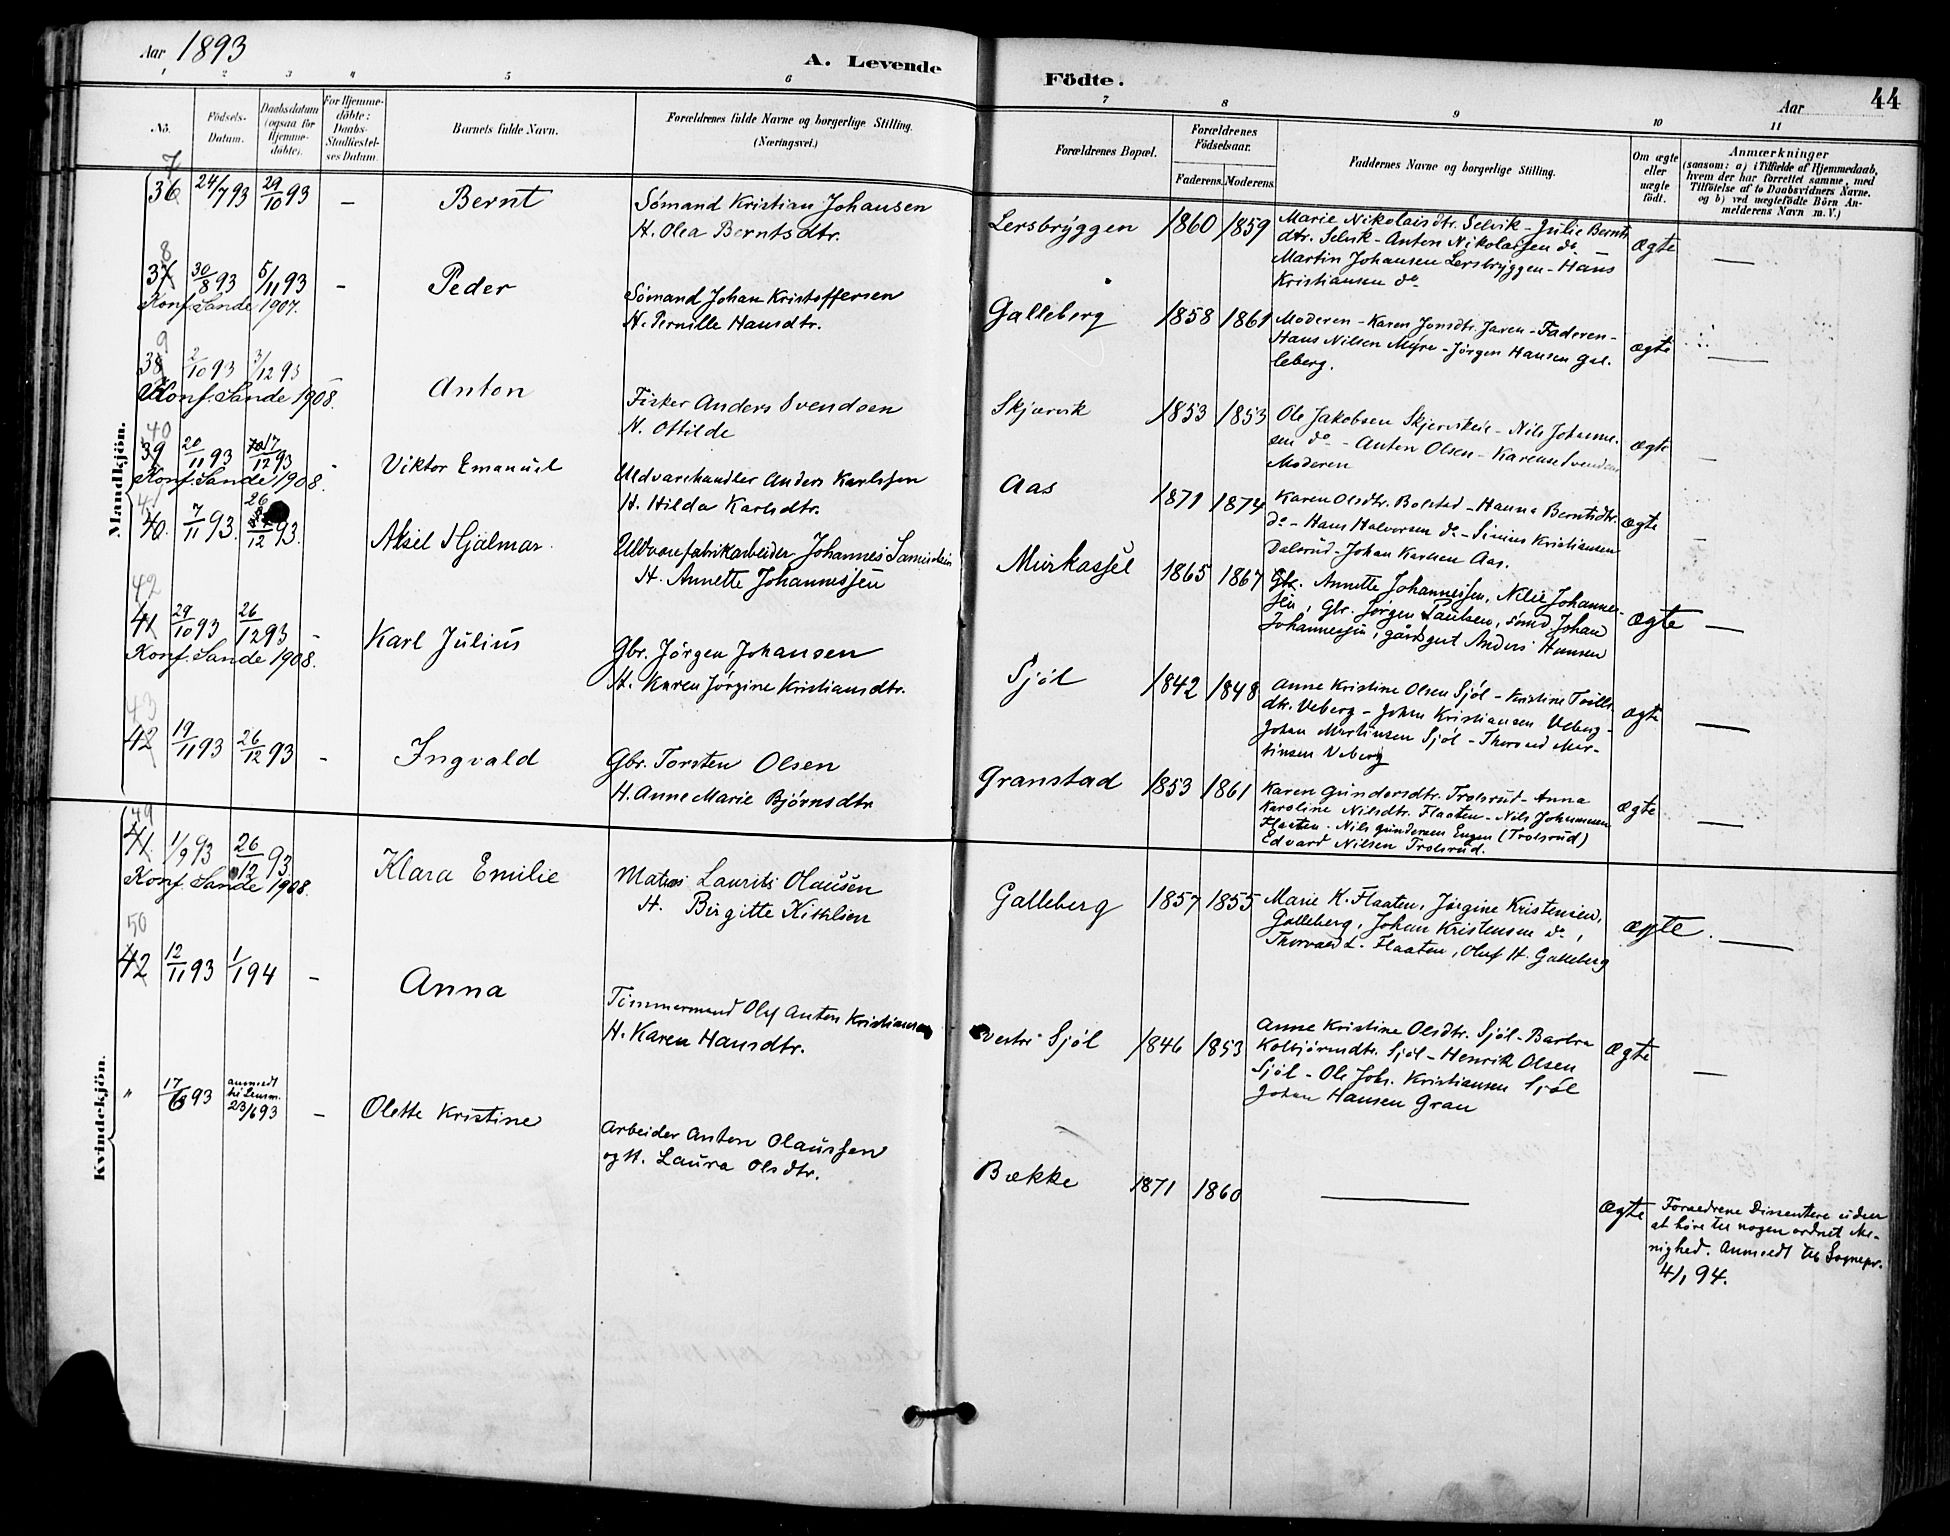 Aar 1893
A. Levende
Födte.
Aar
44
1 2 3 4 5 6 7 8 9 10 11
No.
Födsels-
Datum.
Daabsdatum
(ogsaa for
Hjemme-
döbte).
For Hjemme-
döbte:
Daabs-
Stadfæstel-
ses Datum.
Barnets fulde Navn.
Forældrenes fulde Navne og borgerlige Stilling.
(Næringsvei.)
Forældrenes Bopæl.
Forældrenes
Födselsaar.
Faderens. Moderens.
Faddernes Navne og borgerlige Stilling.
Om ægte
eller
uægte
födt.
Anmærkninger
(saasom: a) i Tilfælde af Hjemmedaab,
hvem der har forrettet samme, med
Tilföielse af to Daabsvidners Navne.
og b) ved uægtefödte Börn An-
melderens Navn m.V.)
Mandkjön.
7
36 24/7 93 29/10 93 — Bernt
Sømand Kristian Johansen
H. Olea Berntsdtr.
Lersbryggen 1860 1859
Marie Nikolaisdtr. Selvik - Julie Bernts
dtr. Selvik - Anton Nikolaisen do
Martin Johansen Lersbryggen - Hans
Kristiansen do
Ægte —
8
37 30/8 93 5/11 93 - Peder
Konf. Sande 1907.
Sømand Johan Kristoffersen
H. Pernille Hansdtr.
Galleberg 1858 1861
Moderen - Karen Jonsdtr. Jaren - Faderen -
Hans Nilsen Myre - Jørgen Hansen Gal-
leberg.
ægte —
9
38 2/10 93 3/12 93 — Anton
Konf. Sande 1908.
Fisker Anders Svendsen
H. Ottilde
Skjærvik 1853 1853
Ole Jakobsen Skjerviken - Nils Johanne-
sen do - Anton Olsen - Karense Svendsen
Moderen
ægte —
40
39 20/11 93 17/12 93 - Viktor Emanuel
Konf. Sande 1908.
Uldvarehandler Anders Karlssen
H. Hilda Karlsdtr.
Aas 1871 1874
Karen Olsdtr. Bolstad - Hanna Berntsdtr.
do - Hans Halvorsen do - Sinius Kristiansen
Dalsrud - Johan Karlsen Aas.
ægte —
40. 7/11 93. 26/12 93. Aksel Hjalmar.
Uldvarefabrikarbeider Johannes
H. Annette Johannessen
Murkassel 1865 1867
Gbr. Annette Johannessen, Nelie Johannes-
sen, Gbr. Jørgen Paulsen, sømd Johan
Johannessen, gårdsgut Anders Hansen
ægte —
42
41 29/10 93 26/12 93 - Karl Julius
Konf. Sande 1908.
Gbr. Jørgen Johansen
H. Karen Jørgine Kristiansdtr.
Sjøl 1842 1848
Anne Kristine Olsen Sjøl - Kristine
dtr. Veberg - Johan Kristiansen Veberg -
Johan Martinsen Sjøl - Thorvald Mar-
tinsen Veberg
ægte —
43
42 19/11 93 26/12 93 - Ingvald
Gbr. Torsten Olsen
H. Anne Marie Bjørnsdtr.
Granstad 1853 1861
Karen Gundersdtr. Trolsrud - Anna
Karoline Nilsdtr. Flaaten - Nils Johannesen
Flaaten - Nils Gundersen Engen (Trolsrud)
Edvard Nilsen Trolsrud.
Ægte —
Kvindekjön.
49
41. 1/9 93 26/12 93. Klara Emilie
Konf. Sande 1908.
Matros Laurits Olausen
H. Birgitte
Galleberg 1857 1855
Marie K. Flaaten, Jørgine Kristensen,
Galleberg, Johan Kristensen do,
Thorvald L. Flaaten, Oluf H. Galleberg
ægte. —
50
42 12/11 93 1/1 94 - Anna
Timmermand Olaf Anton Kristiansen
H. Karen Hansdtr.
vestre Sjøl 1846 1853
Anne Kristine Olsdtr. Sjøl - Barbra
Kolbjørnsdtr. Sjøl - Henrik Olsen
Sjøl - Ole Johs. Kristiansen Sjøl
Johan Hansen Gran
Ægte —
" 17/6 93 anmeldt
til Lensm.
23/6 93 - Olette Kristine
Arbeider Anton Olaussen
og H. Laura Olsdtr.
Bække 1871 1860 —
Ægte
Forældrene Dissentere uden
at høre til nogen ordnet Me-
nighed. Anmeldt til Sognepr.
4/1 94.